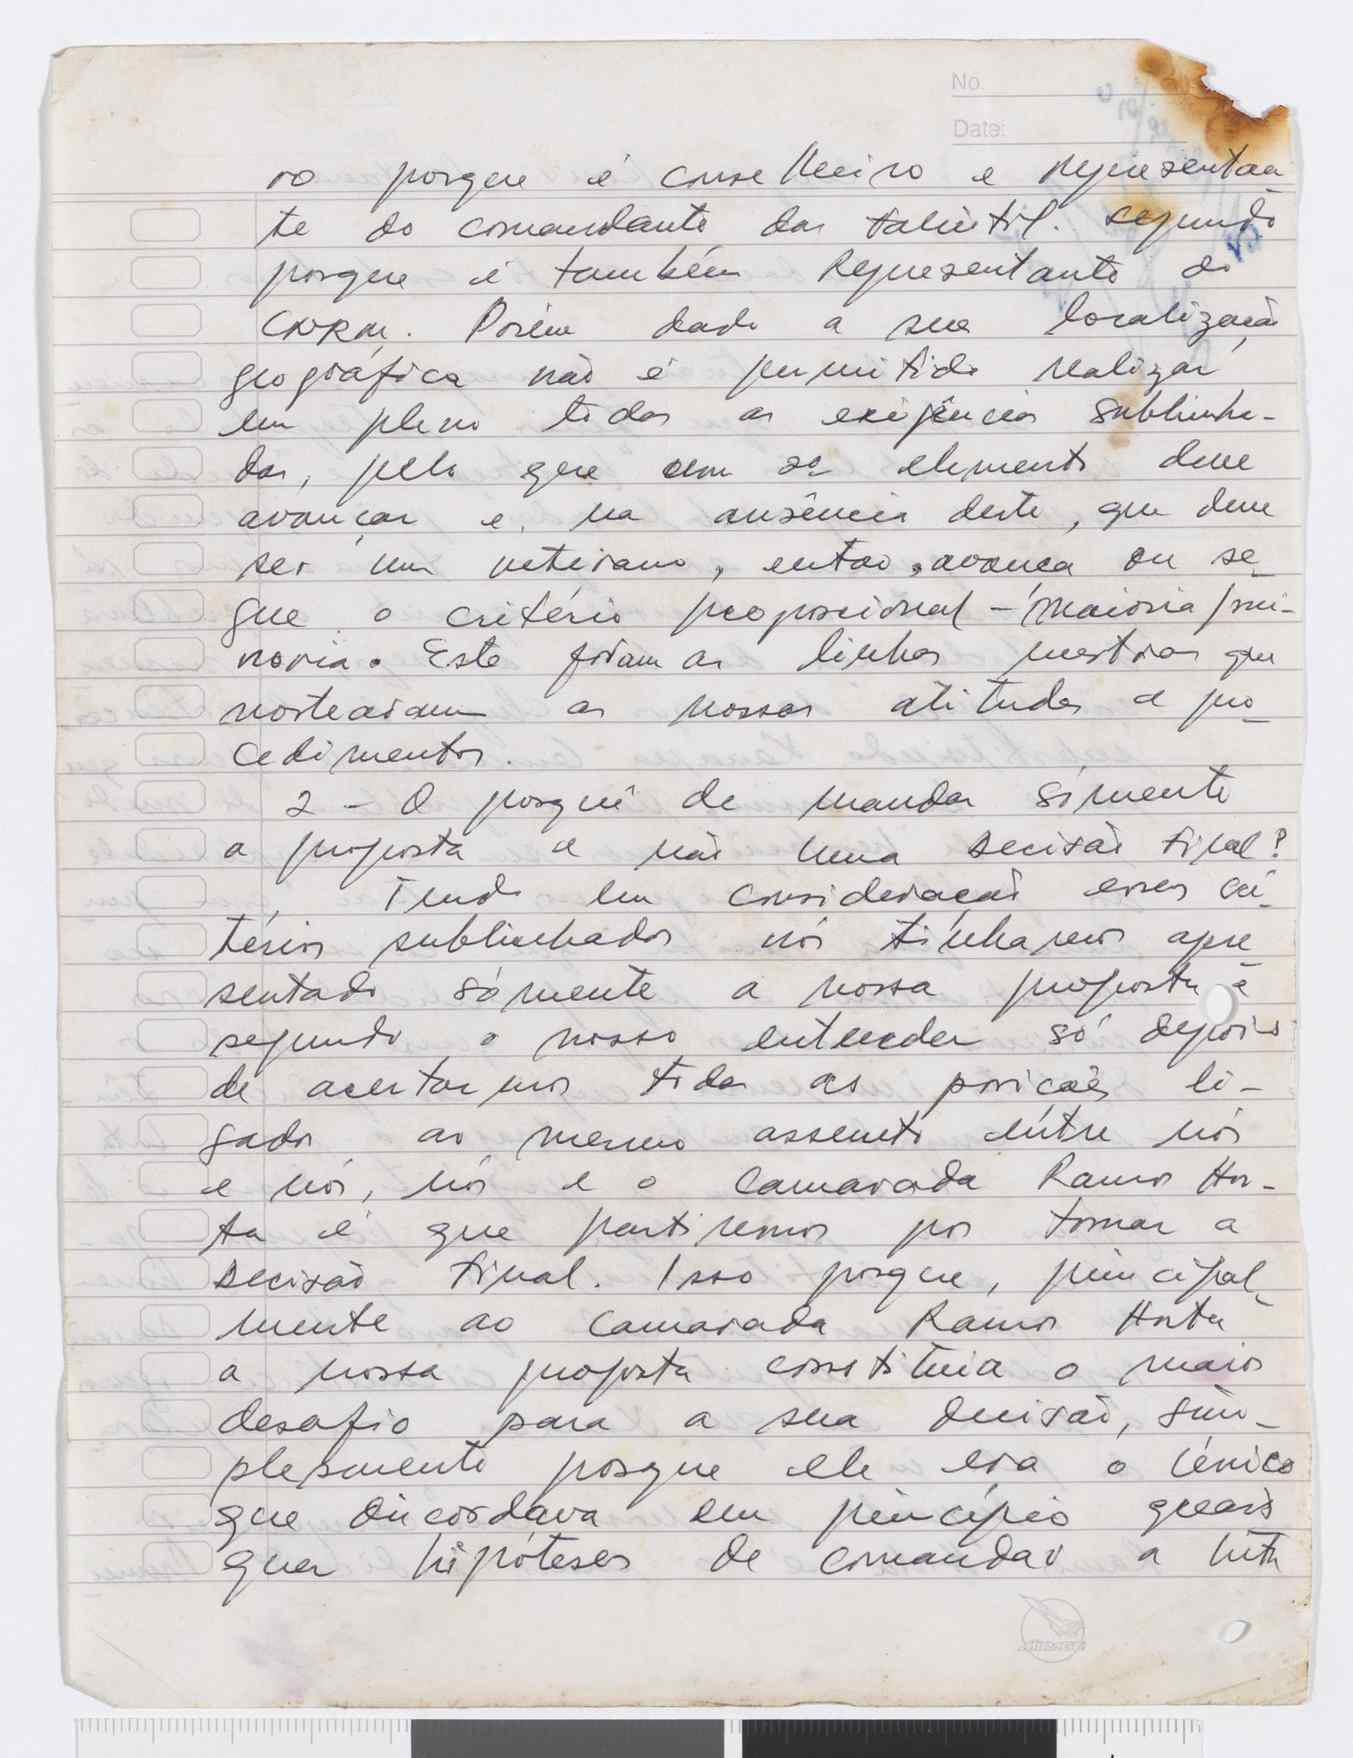 No.
Date:
ro porque é conselheiro e representan
te do comandante das Falintil. Segundo
porque é também Representante do
CNRM. Porém dado a sua localização
geográfica não é permitido realizar
em pleno todas as exigências sublinha-
das, pelo que um 2º elemento deve
avançar e, na ausência deste, que deve
ser um veterano, então, avança ou se-
gue o critério proporcional - maioria/mi-
noria. Este foram as linhas mestras que
nortearam as nossas atitudes e pro-
cedimentos.
2 - O porquê de mandar sómente
a proposta e não uma decisão final?
Tendo em consideração esses cri-
térios sublinhados nós tínhamos apre-
sentado sómente a nossa proposta e
segundo o nosso entender só depois
de acertarmos todas as posições li-
gados ao mesmo assunto entre nós
e nós, nós e o camarada Ramos Hor-
ta é que partiremos por tomar a
decisão final. Isso porque, principal-
mente ao camarada Ramos Horta
a nossa proposta constituia o maior
desafio para a sua decisão, sim-
plesmente porque ele era o único
que discordava em princípio quais
quer hipóteses de comandar a luta